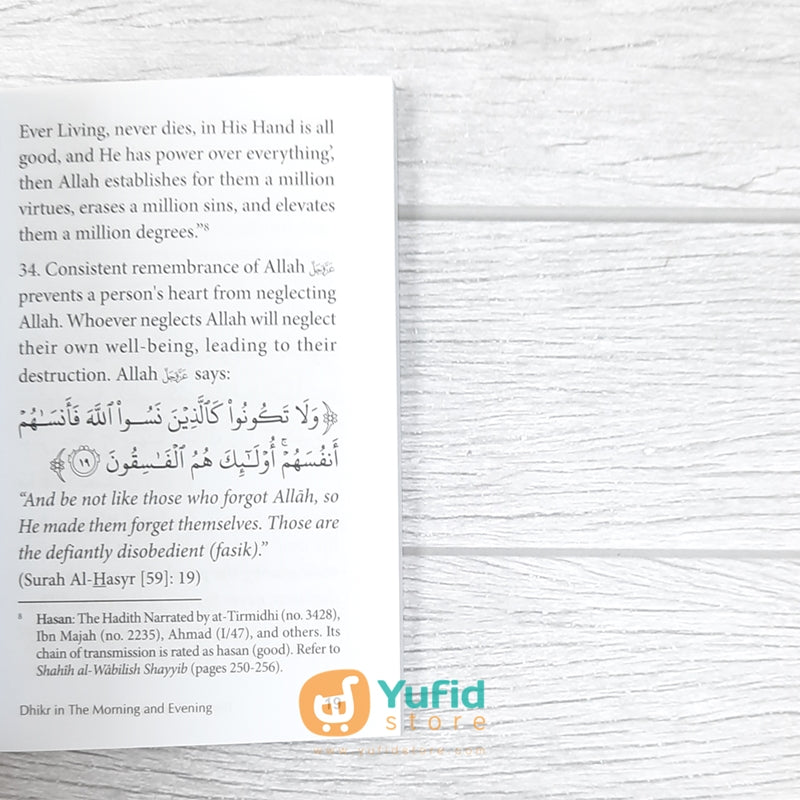 Ever Living, never dies, in His Hand is all
good, and He has power over everything',
then Allah establishes for them a million
virtues, erases a million sins, and elevates
them a million degrees."⁸
34. Consistent remembrance of Allah عَزَّوَجَلَّ
prevents a person's heart from neglecting
Allah. Whoever neglects Allah will neglect
their own well-being, leading to their
destruction. Allah عَزَّوَجَلَّ says:
﴿وَلَا تَكُونُوا۟ كَٱلَّذِينَ نَسُوا۟ ٱللَّهَ فَأَنسَىٰهُمْ
أَنفُسَهُمْ ۚ أُو۟لَـٰٓئِكَ هُمُ ٱلْفَـٰسِقُونَ ١٩﴾
"And be not like those who forgot Allâh, so
He made them forget themselves. Those are
the defiantly disobedient (fasik)."
(Surah Al-Hasyr [59]: 19)
⁸ Hasan: The Hadith Narrated by at-Tirmidhi (no. 3428),
Ibn Majah (no. 2235), Ahmad (I/47), and others. Its
chain of transmission is rated as hasan (good). Refer to
Shahîh al-Wâbilish Shayyib (pages 250-256).
Dhikr in The Morning and Evening
19
Yufid
store
www.yufidstore.com